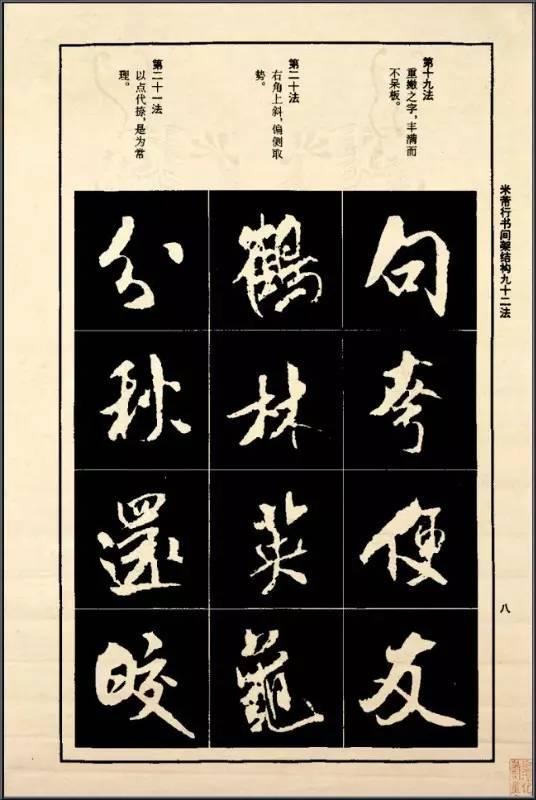 米芾行书间架结构九十二法
八
第十九法
重撇之字，丰满而
不呆板。
句
便
友
第二十法
右角上斜，偏侧取
势。
鶴
林
英
第二十一法
以点代捺，是为常
理。
分
秋
還